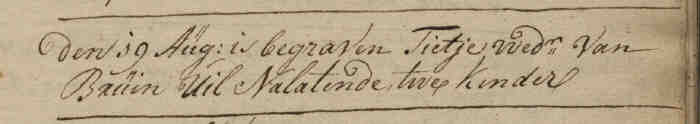 den 19 Aug: is begraven Tietje wedr: van
Bruin Uil Nalatende twe kinder